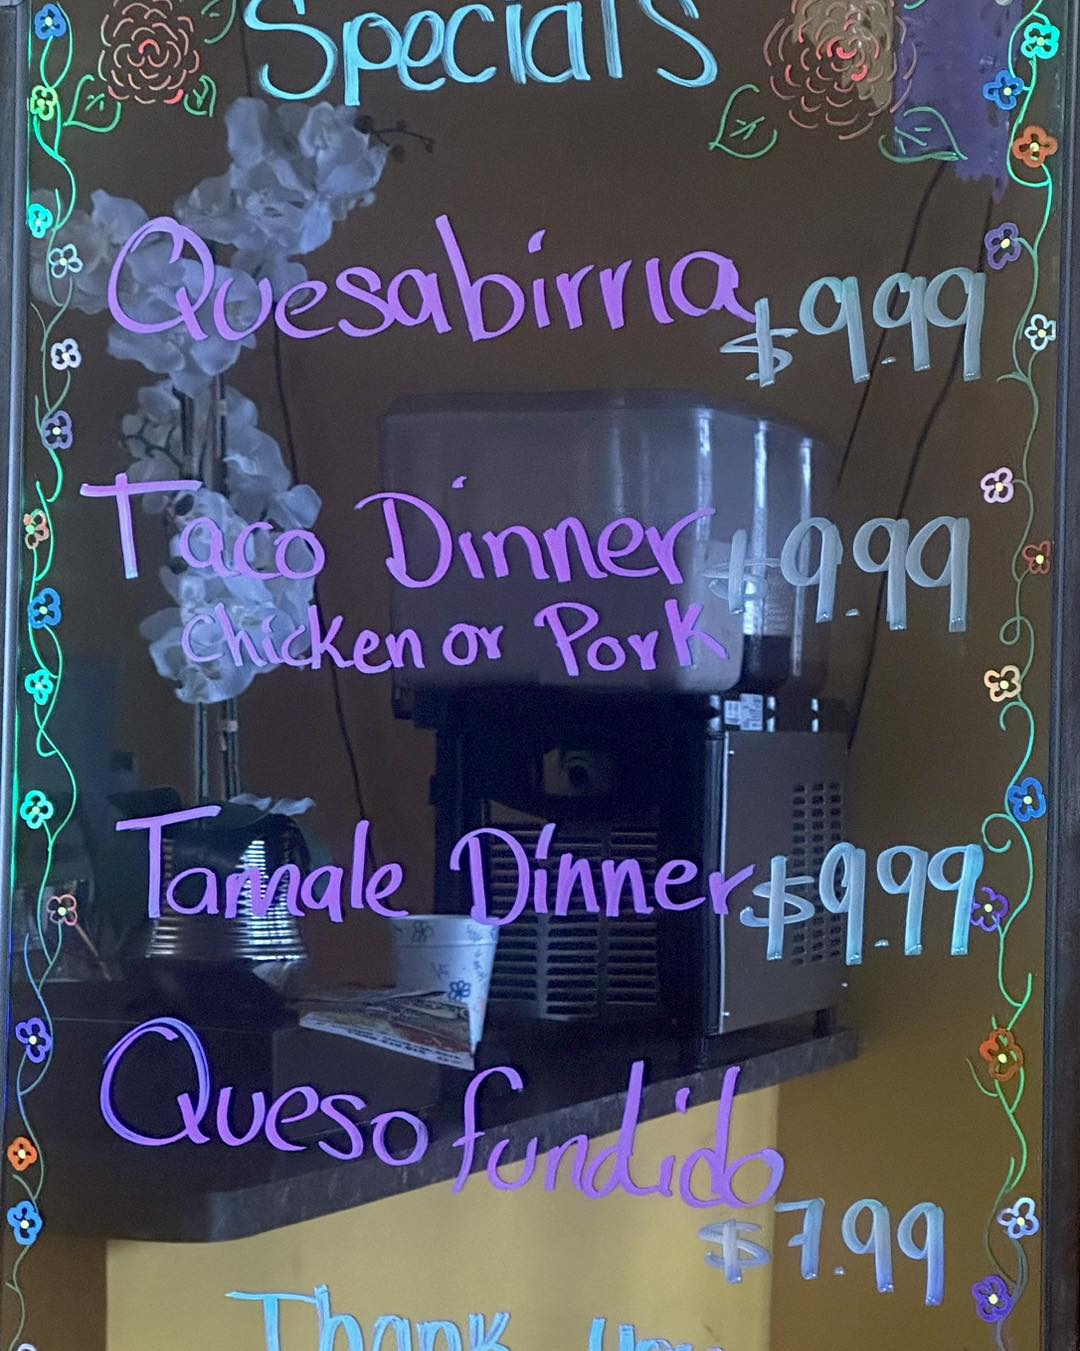 Specials
Quesabirria $9.99
Taco Dinner $9.99
Chicken or Pork
Tamale Dinner $9.99
Queso fundido
$7.99
Thank you